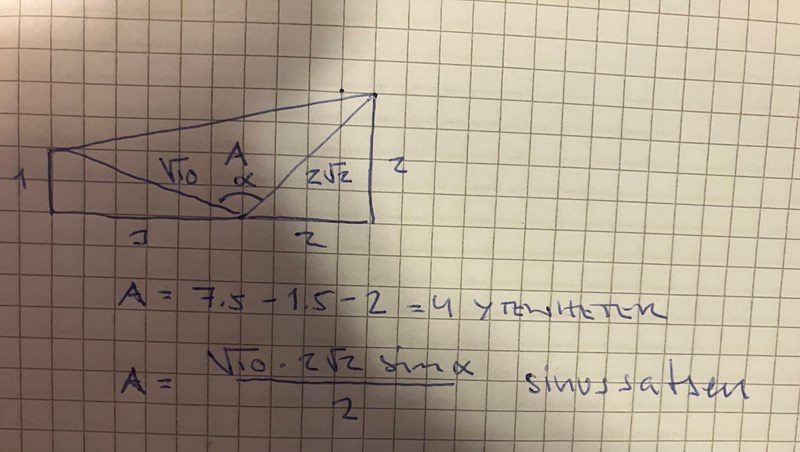 1
√10
A
α
2√2
2
3
2
A = 7.5 - 1.5 - 2 = 4 YTENHETER
A = √10 · 2√2 sin α / 2 sinussatsen